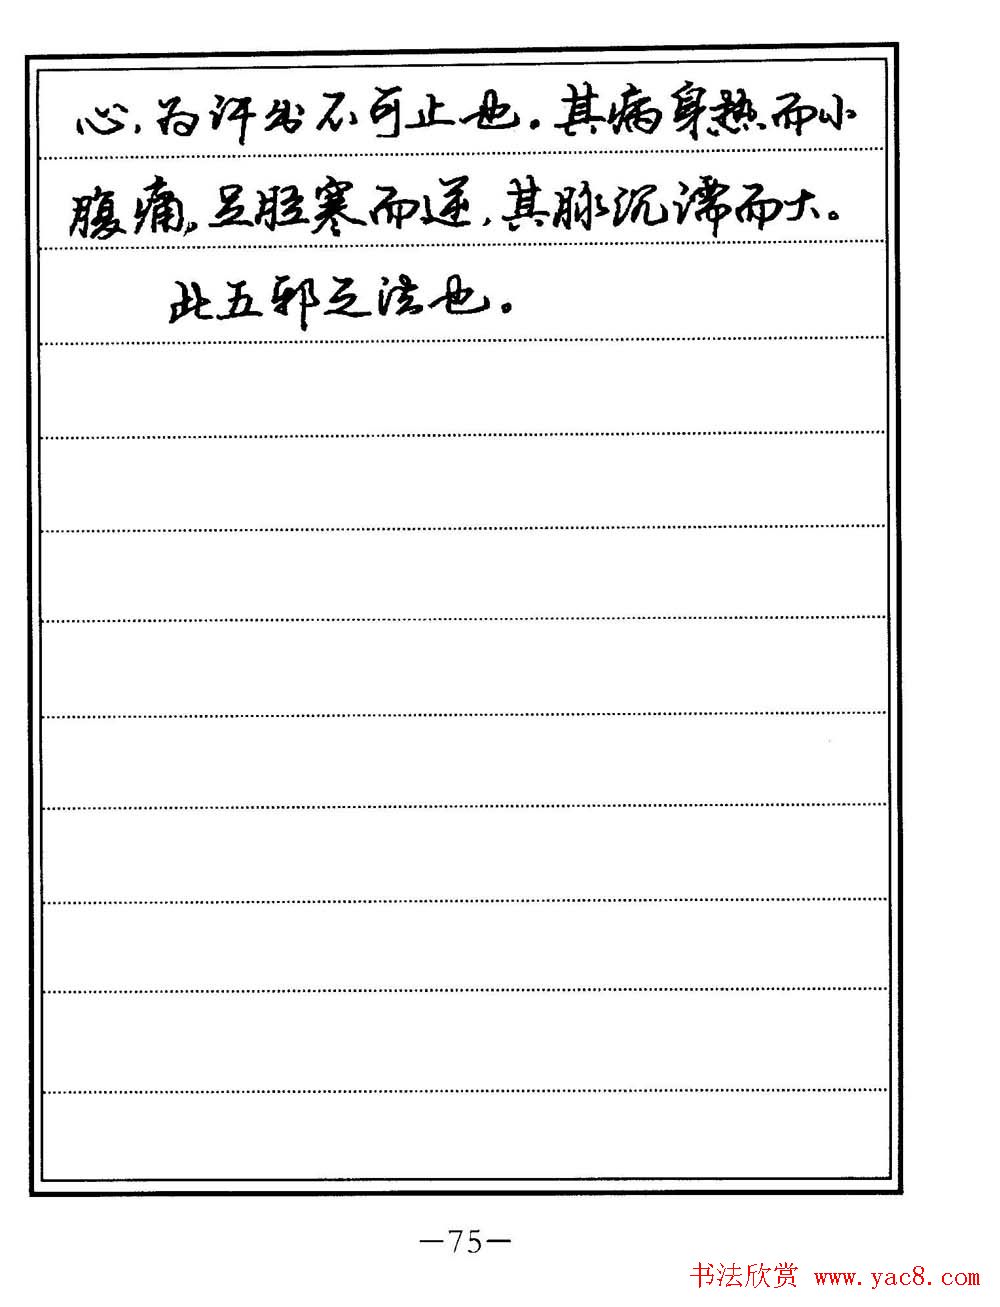 心,为汗出不可止也。其病身热而小
腹痛,足胫寒而逆,其脉沉濡而大。
此五邪之法也。
—75—
书法欣赏 www.yac8.com